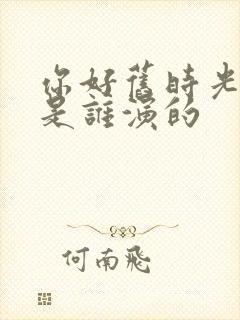 你好舊時光
是誰演的
何南飛